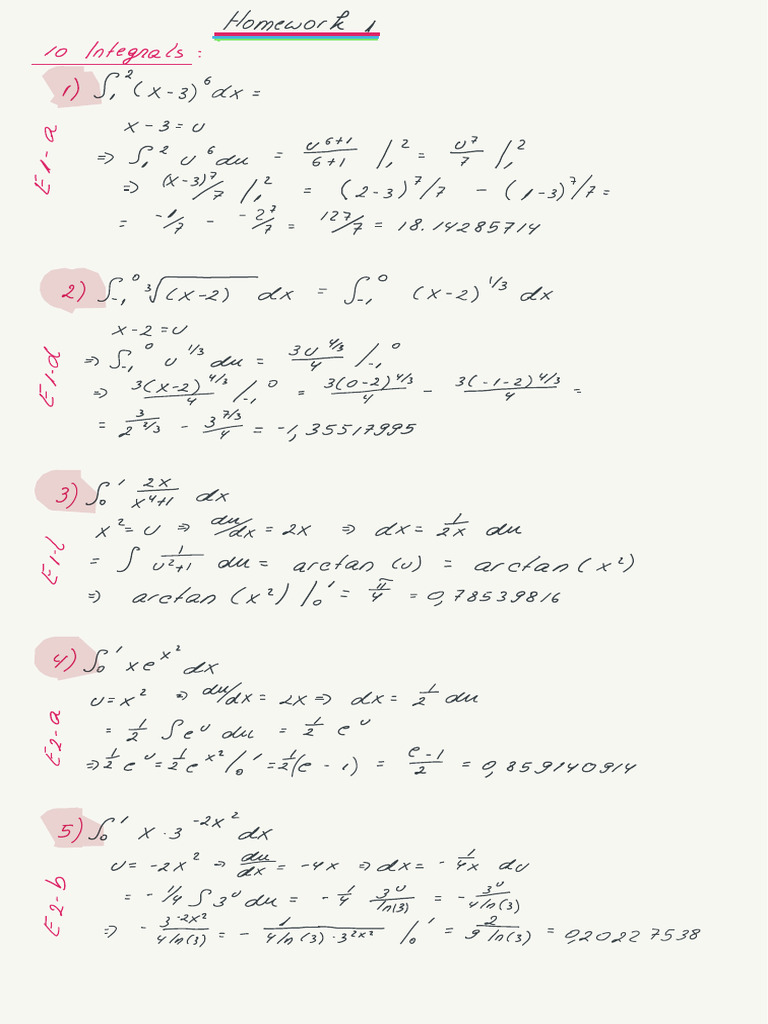 Homework 1
10 Integrals:
1) ∫₁² (x-3)⁶ dx =
E1-a
x-3=u
=> ∫₁² u⁶ du = u⁶⁺¹/6+1 |₁² = u⁷/7 |₁²
=> (x-3)⁷/7 |₁² = (2-3)⁷/7 - (1-3)⁷/7 =
= -1/7 - -2⁷/7 = 127/7 = 18.14285714
2) ∫₋₁⁰ ³√(x-2) dx = ∫₋₁⁰ (x-2)^1/3 dx
E1-d
x-2=u
=> ∫₋₁⁰ u^1/3 du = 3u^4/3/4 |₋₁⁰
=> 3(x-2)^4/3/4 |₋₁⁰ = 3(0-2)^4/3/4 - 3(-1-2)^4/3/4 =
= 3/2^2/3 - 3^7/3/4 = -1,35517995
3) ∫₀¹ 2x/x⁴+1 dx
E1-l
x²=u => du/dx = 2x => dx = 1/2x du
= ∫ 1/u²+1 du = arctan(u) = arctan(x²)
=> arctan(x²) |₀¹ = π/4 = 0,78539816
4) ∫₀¹ xe^x² dx
E2-a
u=x² => du/dx = 2x => dx = 1/2 du
= 1/2 ∫e^u du = 1/2 e^u
=> 1/2 e^u = 1/2 e^x² |₀¹ = 1/2(e-1) = e-1/2 = 0,859140914
5) ∫₀¹ x·3^-2x² dx
E2-b
u=-2x² => du/dx = -4x => dx = -1/4x du
= -1/4 ∫3^u du = -1/4 3^u/ln(3) = -3^u/4ln(3)
=> -3^-2x²/4ln(3) = -1/4ln(3)·3^2x² |₀¹ = 2/9ln(3) = 0,20227538